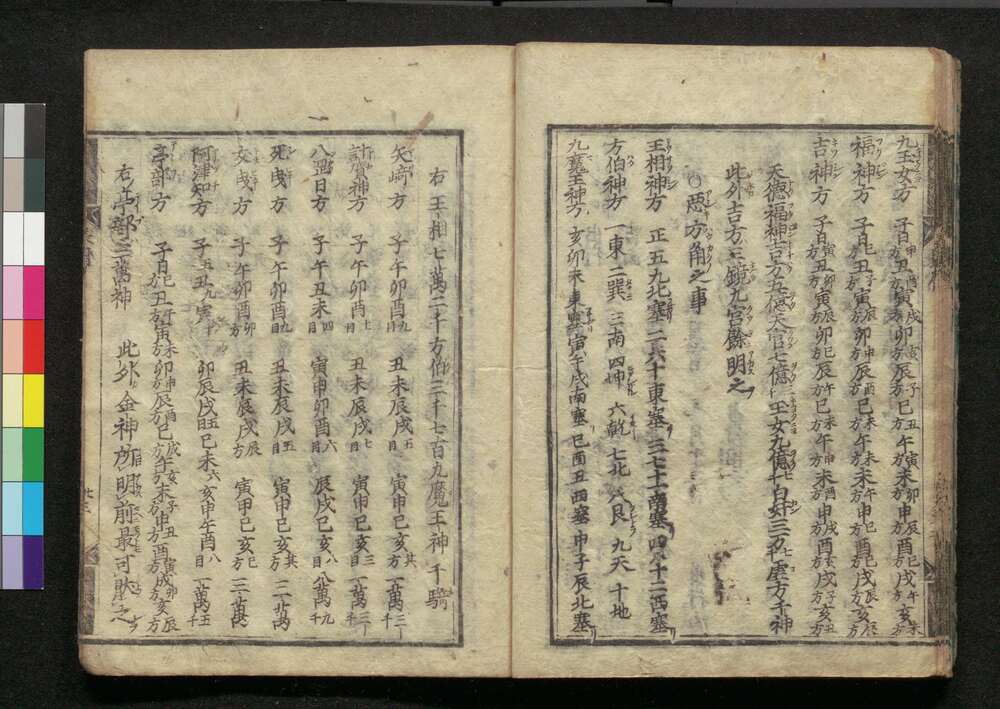 九玉女方 子日申丑酉寅戌卯寅辰子巳丑午寅未卯申辰酉巳戌午亥未方
福神方 子日巳丑子寅辰卯申辰酉巳未午未未午申巳酉巳戌辰亥
吉神方 子日寅丑卯寅辰卯巳辰午巳未午申未酉申戌酉亥戌子亥丑方
天徳福神吉方五億天官七億玉女九億
此外吉方三鏡九宮餘明之
○悪方角之事
王相神方 正五九北塞 二六十東塞 三七十一南塞 四八十二西塞
方伯神方 一東 二巽 三南 四坤 六乾 七北 八艮 九天 十地
九魔王神方 亥卯未東塞 寅午戌南塞 巳酉丑西塞 申子辰北塞
右王相七萬二千方伯三千七百九魔王神千騎
矢﨑方 子午卯酉九日 丑未辰戌五日 寅申巳亥其方 一萬三千
計賀神方 子午卯酉七日 丑未辰戌七日 寅申巳亥三日 一萬三千
八罡日方 子午丑未四日 寅申卯酉六日 辰戌巳亥一日 八萬九千
死曳方 子午卯酉九日 丑未辰戌五日 寅申巳亥其方 二萬
女曳方 子午卯酉卯方 丑未辰戌辰方 寅申巳亥巳方 三萬
阿津知方 子丑九寅十 卯辰戌 巳未六 亥申午酉八日 一萬五千
亭部方 子日巳丑午寅未卯申辰酉巳戌午亥未子申丑酉寅戌卯亥辰方
右亭部三萬神 此外金神所明前最可除之